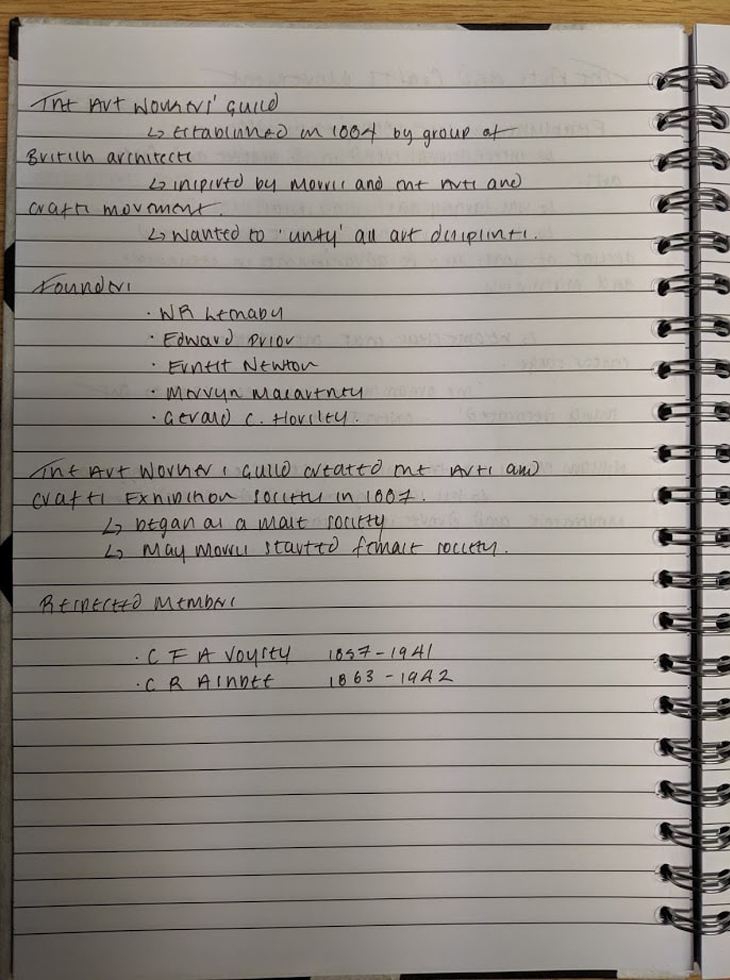 The Art Workers' Guild
↳ established in 1884 by group of
British architects
↳ inspired by Morris and the Arts and
Crafts movement.
↳ Wanted to 'unify' all art disiplines.
Founders
· WR Lethaby
· Edward Prior
· Ernest Newton
· Mervyn Macartney
· Gerald C. Horsley.
The Art Workers Guild created the Arts and
Crafts Exhibition Society in 1887.
↳ began as a male society
↳ May Morris started female society.
Respected Members
· C F A Voysey 1857-1941
· C R Ashbee 1863-1942